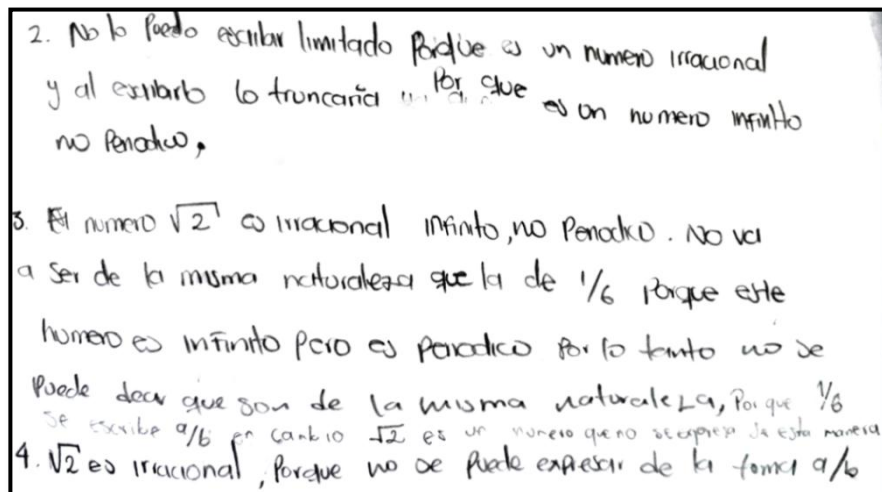 2. No lo Puedo escribir limitado Porque es un numero irracional
y al escribirlo lo truncaría ... Por que es un numero infinito
no Periodico.
3. El numero √2 es irracional infinito, no Periodico. No va
a ser de la misma naturaleza que la de 1/6 Porque este
numero es infinito Pero es periodico Por lo tanto no se
Puede decir que son de la misma naturaleza, Porque 1/6
se escribe a/b en cambio √2 es un numero que no se expresa de esta manera
4. √2 es irracional, Porque no se Puede expresar de la forma a/b